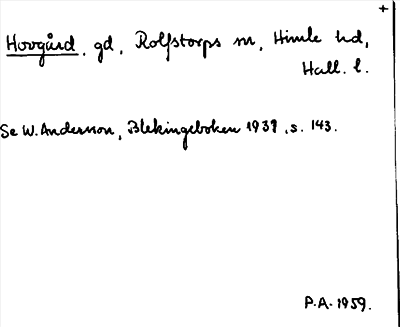 +
Hovgård. gd, Rolfstorps sn, Himle hd,
Hall. l.
Se W. Anderson, Blekingeboken 1939, s. 143.
P.A. 1959.